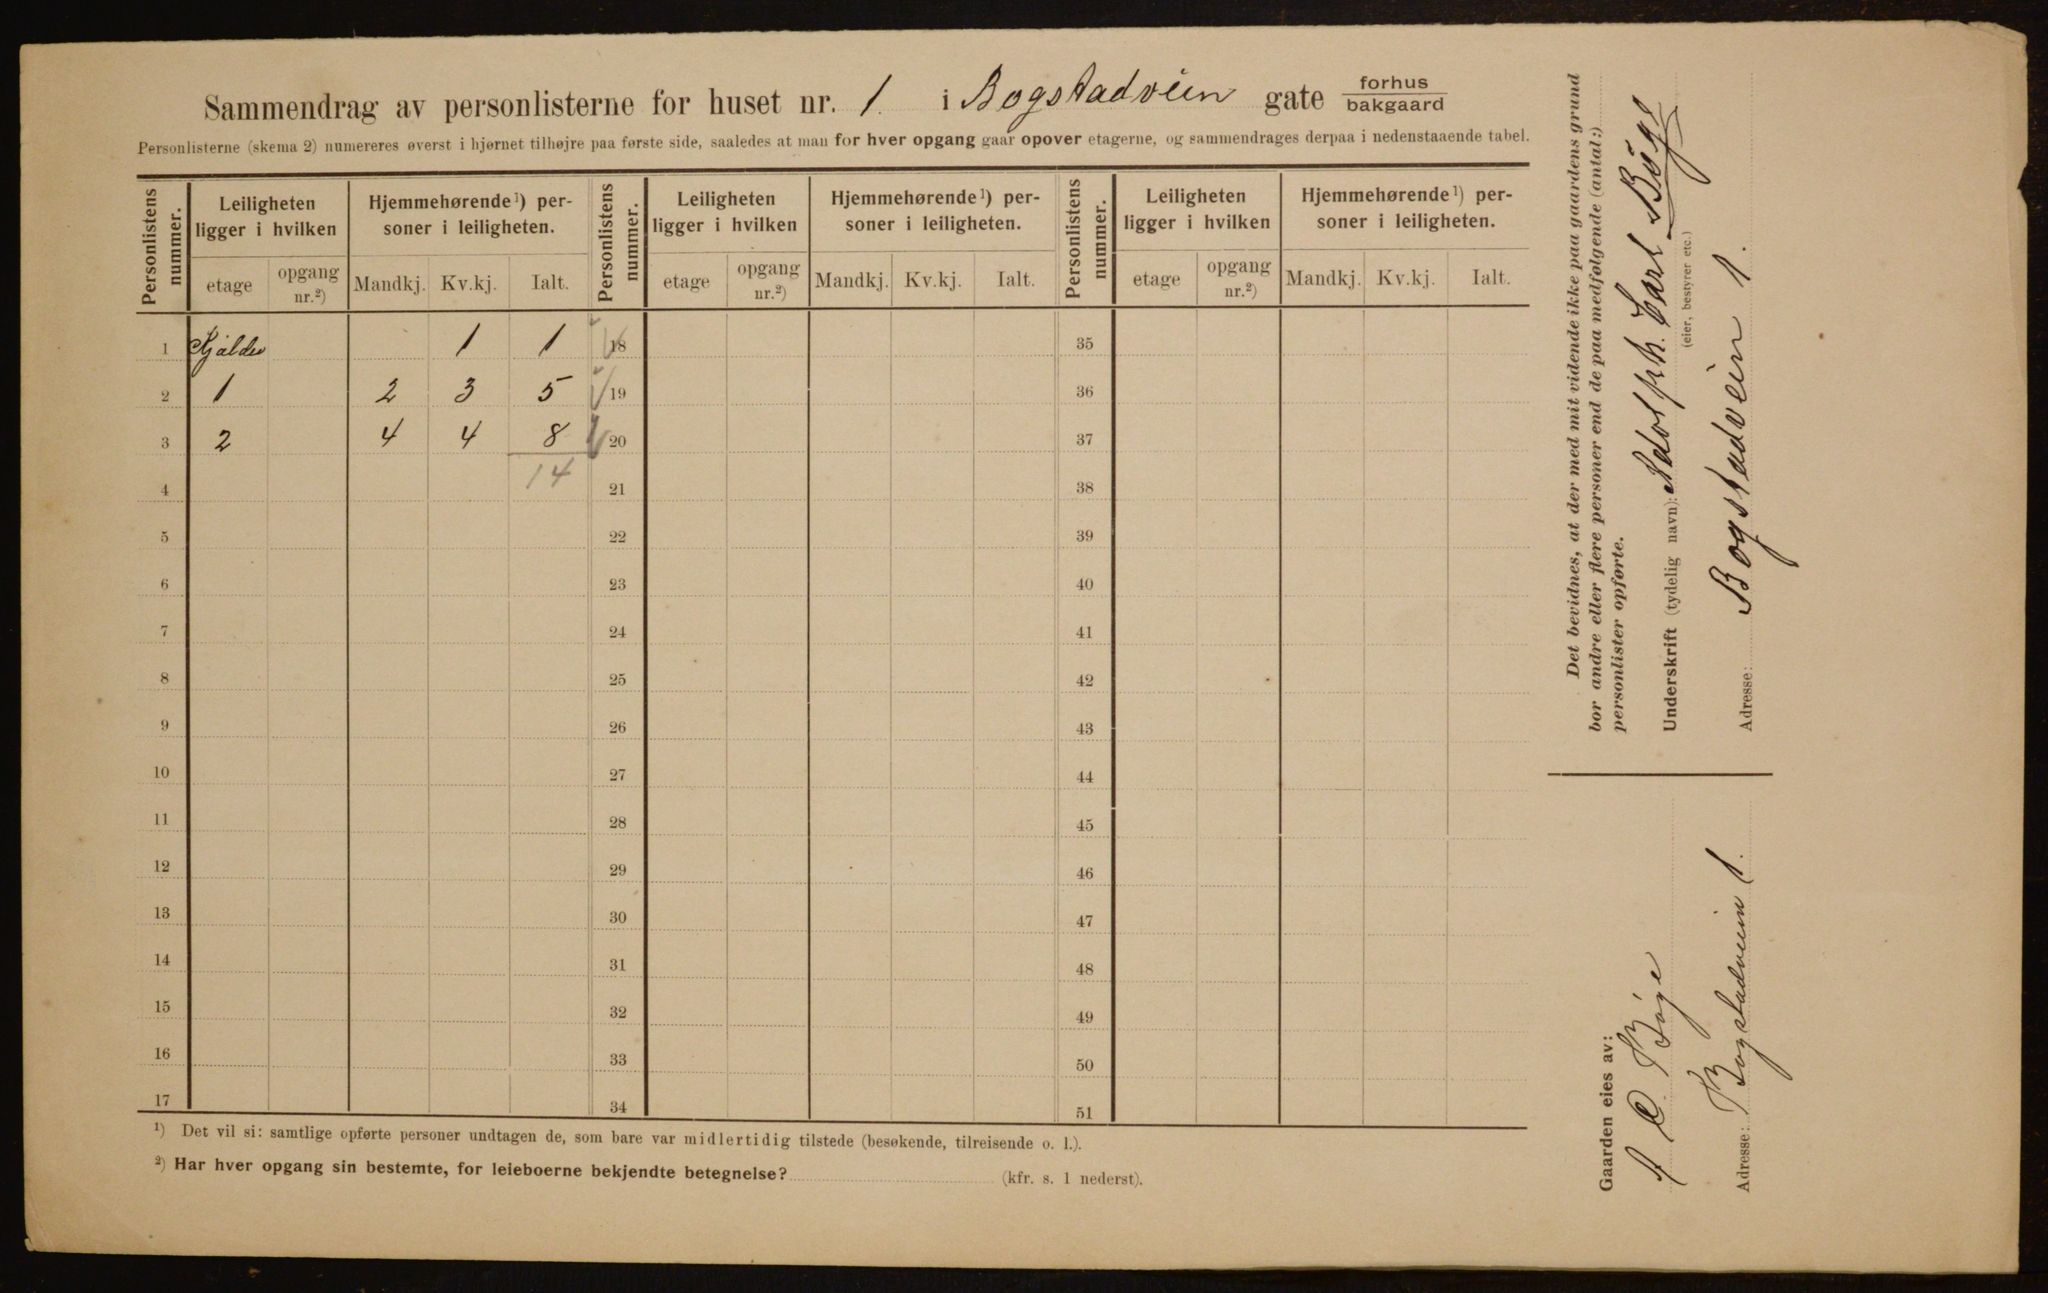 Sammendrag av personlisterne for huset nr. 1. i Bogstadveien gate forhus
bakgaard
Personlisterne (skema 2) numereres øverst i hjørnet tilhøjre paa første side, saaledes at man for hver opgang gaar opover etagerne, og sammendrages derpaa i nedenstaaende tabel.
Personlistens nummer. Leiligheten ligger i hvilken Hjemmehørende¹) personer i leiligheten. Personlistens nummer. Leiligheten ligger i hvilken Hjemmehørende¹) personer i leiligheten. Personlistens nummer. Leiligheten ligger i hvilken Hjemmehørende¹) personer i leiligheten.
etage opgang nr.²) Mandkj. Kv.kj. Ialt. etage opgang nr.²) Mandkj. Kv.kj. Ialt. etage opgang nr.²) Mandkj. Kv.kj. Ialt.
1 Kjälder 1 1 18 35
2 1 2 3 5 19 36
3 2 4 4 8 20 37
4 14 21 38
5 22 39
6 23 40
7 24 41
8 25 42
9 26 43
10 27 44
11 28 45
12 29 46
13 30 47
14 31 48
15 32 49
16 33 50
17 34 51
¹) Det vil si: samtlige opførte personer undtagen de, som bare var midlertidig tilstede (besøkende, tilreisende o. l.).
²) Har hver opgang sin bestemte, for leieboerne bekjendte betegnelse? (kfr. s. 1 nederst).
Det bevidnes, at der med mit vidende ikke paa gaardens grund
bor andre eller flere personer end de paa medfølgende (antal:)
personlister opførte.
Underskrift (tydelig navn): Adolph Carl Böge
(eier, bestyrer etc.)
Adresse: Bogstadveien 1.
Gaarden eies av:
A C Böge
Adresse: Bogstadveien 1.